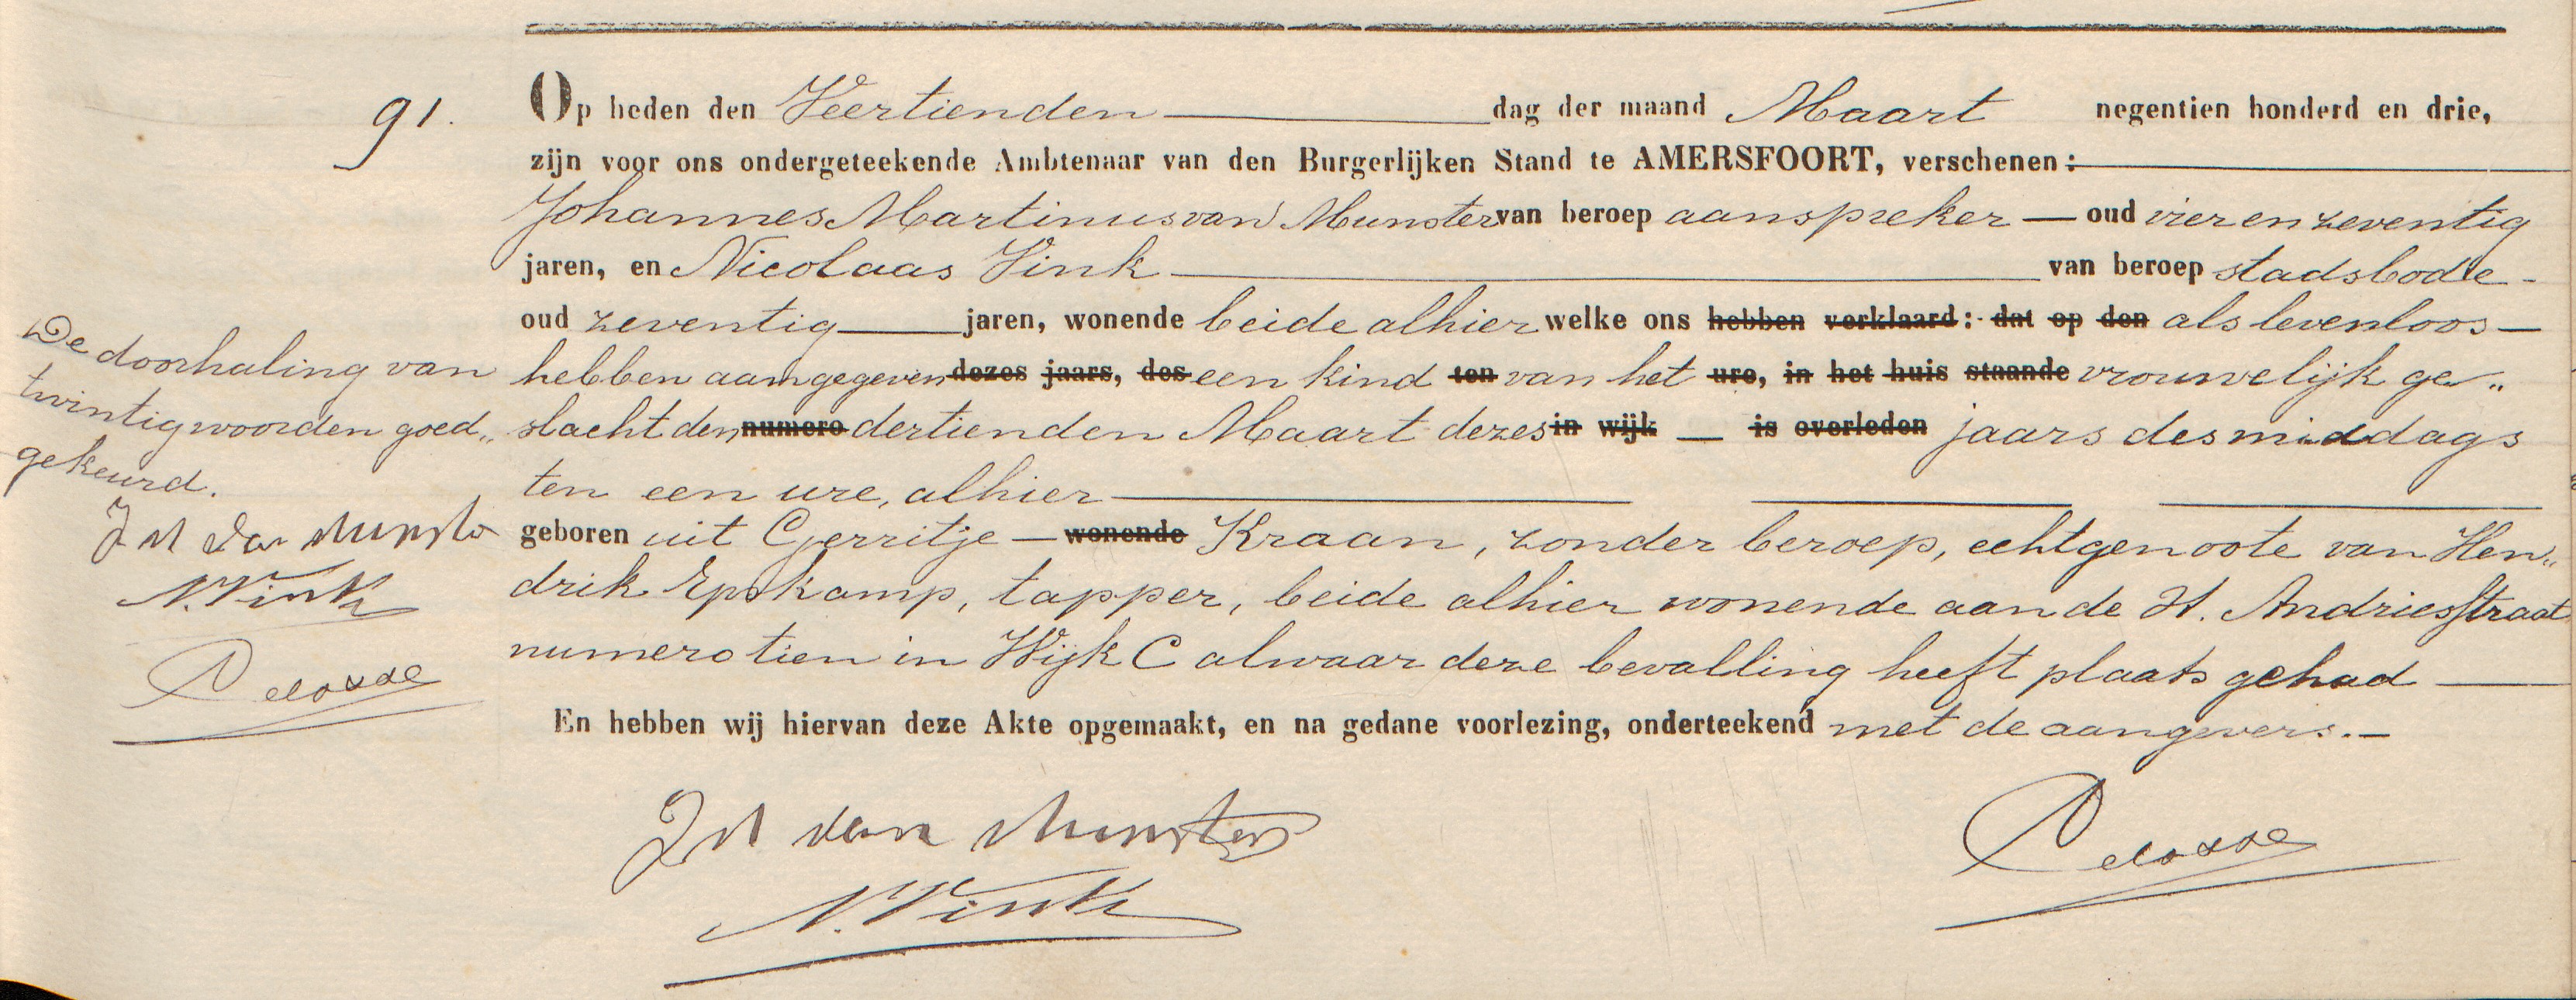 91.
Op heden den Veertienden dag der maand Maart negentien honderd en drie,
zijn voor ons ondergeteekende Ambtenaar van den Burgerlijken Stand te AMERSFOORT, verschenen:
Johannes Martinus van Munster van beroep aanspreker — oud vier en zeventig
jaren, en Nicolaas Vink van beroep stadsbode -
oud zeventig jaren, wonende beide alhier welke ons hebben verklaard: dat op den als levenloos —
hebben aangegeven dezes jaars, des een kind ten van het ure, in het huis staande vrouwelijk ge„
slacht den numero dertienden Maart dezes in wijk — is overleden jaars des middags
ten een ure, alhier
geboren uit Gerritje — wonende Kraan, zonder beroep, echtgenoote van Hen„
drik Epskamp, tapper, beide alhier wonende aan de St. Andriesstraat
numero tien in Wijk C alwaar deze bevalling heeft plaats gehad —
En hebben wij hiervan deze Akte opgemaakt, en na gedane voorlezing, onderteekend met de aangevers. —
De doorhaling van
twintig woorden goed„
gekeurd.
J M van Munster
N. Vink
J M van Munster
N. Vink